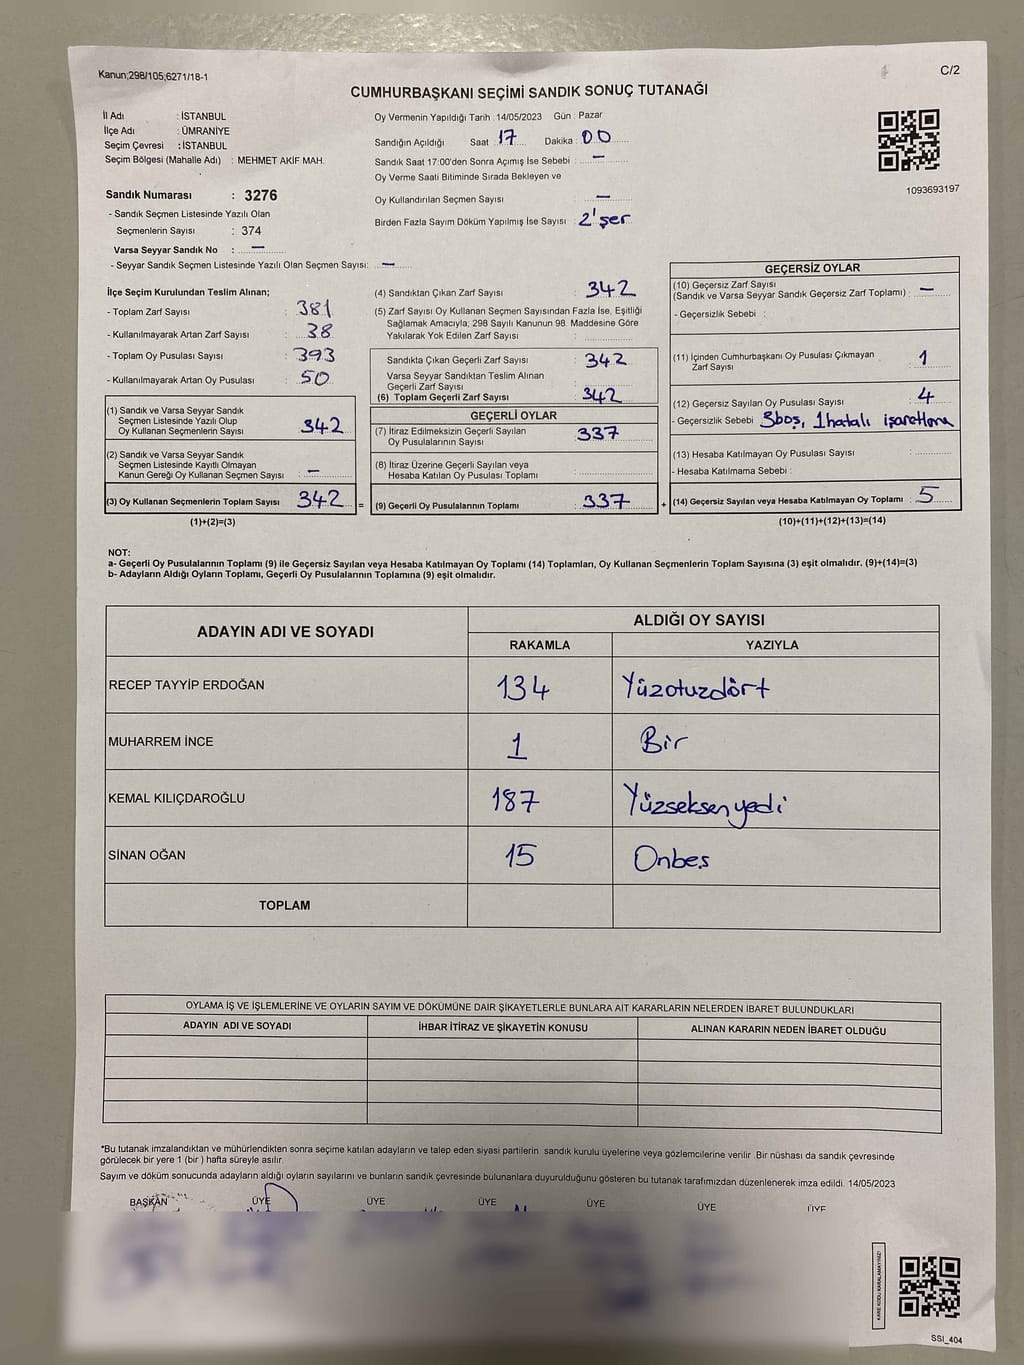 Kanun;298/105;6271/18-1
C/2
CUMHURBAŞKANI SEÇİMİ SANDIK SONUÇ TUTANAĞI
İl Adı : İSTANBUL
İlçe Adı : ÜMRANİYE
Seçim Çevresi : İSTANBUL
Seçim Bölgesi (Mahalle Adı) : MEHMET AKİF MAH.
Sandık Numarası : 3276
- Sandık Seçmen Listesinde Yazılı Olan
Seçmenlerin Sayısı : 374
Varsa Seyyar Sandık No : —
- Seyyar Sandık Seçmen Listesinde Yazılı Olan Seçmen Sayısı: —
Oy Vermenin Yapıldığı Tarih : 14/05/2023 Gün : Pazar
Sandığın Açıldığı Saat 17 Dakika : 00
Sandık Saat 17:00'den Sonra Açımış İse Sebebi : —
Oy Verme Saati Bitiminde Sırada Bekleyen ve
Oy Kullandırılan Seçmen Sayısı —
Birden Fazla Sayım Döküm Yapılmış İse Sayısı : 2'şer
1093693197
İlçe Seçim Kurulundan Teslim Alınan;
- Toplam Zarf Sayısı : 381
- Kullanılmayarak Artan Zarf Sayısı : 38
- Toplam Oy Pusulası Sayısı : 393
- Kullanılmayarak Artan Oy Pusulası : 50
(1) Sandık ve Varsa Seyyar Sandık
Seçmen Listesinde Yazılı Olup
Oy Kullanan Seçmenlerin Sayısı : 342
(2) Sandık ve Varsa Seyyar Sandık
Seçmen Listesinde Kayıtlı Olmayan
Kanun Gereği Oy Kullanan Seçmen Sayısı : —
(3) Oy Kullanan Seçmenlerin Toplam Sayısı : 342 =
(1)+(2)=(3)
(4) Sandıktan Çıkan Zarf Sayısı : 342
(5) Zarf Sayısı Oy Kullanan Seçmen Sayısından Fazla İse, Eşitliği
Sağlamak Amacıyla; 298 Sayılı Kanunun 98. Maddesine Göre
Yakılarak Yok Edilen Zarf Sayısı :
Sandıkta Çıkan Geçerli Zarf Sayısı : 342
Varsa Seyyar Sandıktan Teslim Alınan
Geçerli Zarf Sayısı
(6) Toplam Geçerli Zarf Sayısı : 342
GEÇERLİ OYLAR
(7) İtiraz Edilmeksizin Geçerli Sayılan
Oy Pusulalarının Sayısı : 337
(8) İtiraz Üzerine Geçerli Sayılan veya
Hesaba Katılan Oy Pusulası Toplamı :
(9) Geçerli Oy Pusulalarının Toplamı : 337 +
GEÇERSİZ OYLAR
(10) Geçersiz Zarf Sayısı
(Sandık ve Varsa Seyyar Sandık Geçersiz Zarf Toplamı) : —
- Geçersizlik Sebebi :
(11) İçinden Cumhurbaşkanı Oy Pusulası Çıkmayan
Zarf Sayısı : 1
(12) Geçersiz Sayılan Oy Pusulası Sayısı : 4
- Geçersizlik Sebebi 3boş, 1hatalı işaretleme
(13) Hesaba Katılmayan Oy Pusulası Sayısı :
- Hesaba Katılmama Sebebi :
(14) Geçersiz Sayılan veya Hesaba Katılmayan Oy Toplamı : 5
(10)+(11)+(12)+(13)=(14)
NOT:
a- Geçerli Oy Pusulalarının Toplamı (9) ile Geçersiz Sayılan veya Hesaba Katılmayan Oy Toplamı (14) Toplamları, Oy Kullanan Seçmenlerin Toplam Sayısına (3) eşit olmalıdır. (9)+(14)=(3)
b- Adayların Aldığı Oyların Toplamı, Geçerli Oy Pusulalarının Toplamına (9) eşit olmalıdır.
ADAYIN ADI VE SOYADI
ALDIĞI OY SAYISI
RAKAMLA YAZIYLA
RECEP TAYYİP ERDOĞAN 134 Yüzotuzdört
MUHARREM İNCE 1 Bir
KEMAL KILIÇDAROĞLU 187 Yüzseksenyedi
SİNAN OĞAN 15 Onbeş
TOPLAM
OYLAMA İŞ VE İŞLEMLERİNE VE OYLARIN SAYIM VE DÖKÜMÜNE DAİR ŞİKAYETLERLE BUNLARA AİT KARARLARIN NELERDEN İBARET BULUNDUKLARI
ADAYIN ADI VE SOYADI İHBAR İTİRAZ VE ŞİKAYETİN KONUSU ALINAN KARARIN NEDEN İBARET OLDUĞU
*Bu tutanak imzalandıktan ve mühürlendikten sonra seçime katılan adayların ve talep eden siyasi partilerin sandık kurulu üyelerine veya gözlemcilerine verilir .Bir nüshası da sandık çevresinde
görülecek bir yere 1 (bir ) hafta süreyle asılır.
Sayım ve döküm sonucunda adayların aldığı oyların sayılarını ve bunların sandık çevresinde bulunanlara duyurulduğunu gösteren bu tutanak tarafımızdan düzenlenerek imza edildi. 14/05/2023
BAŞKAN ÜYE ÜYE ÜYE ÜYE ÜYE ÜYE
KARE KODU KARALAMAYINIZ!
SSI_404